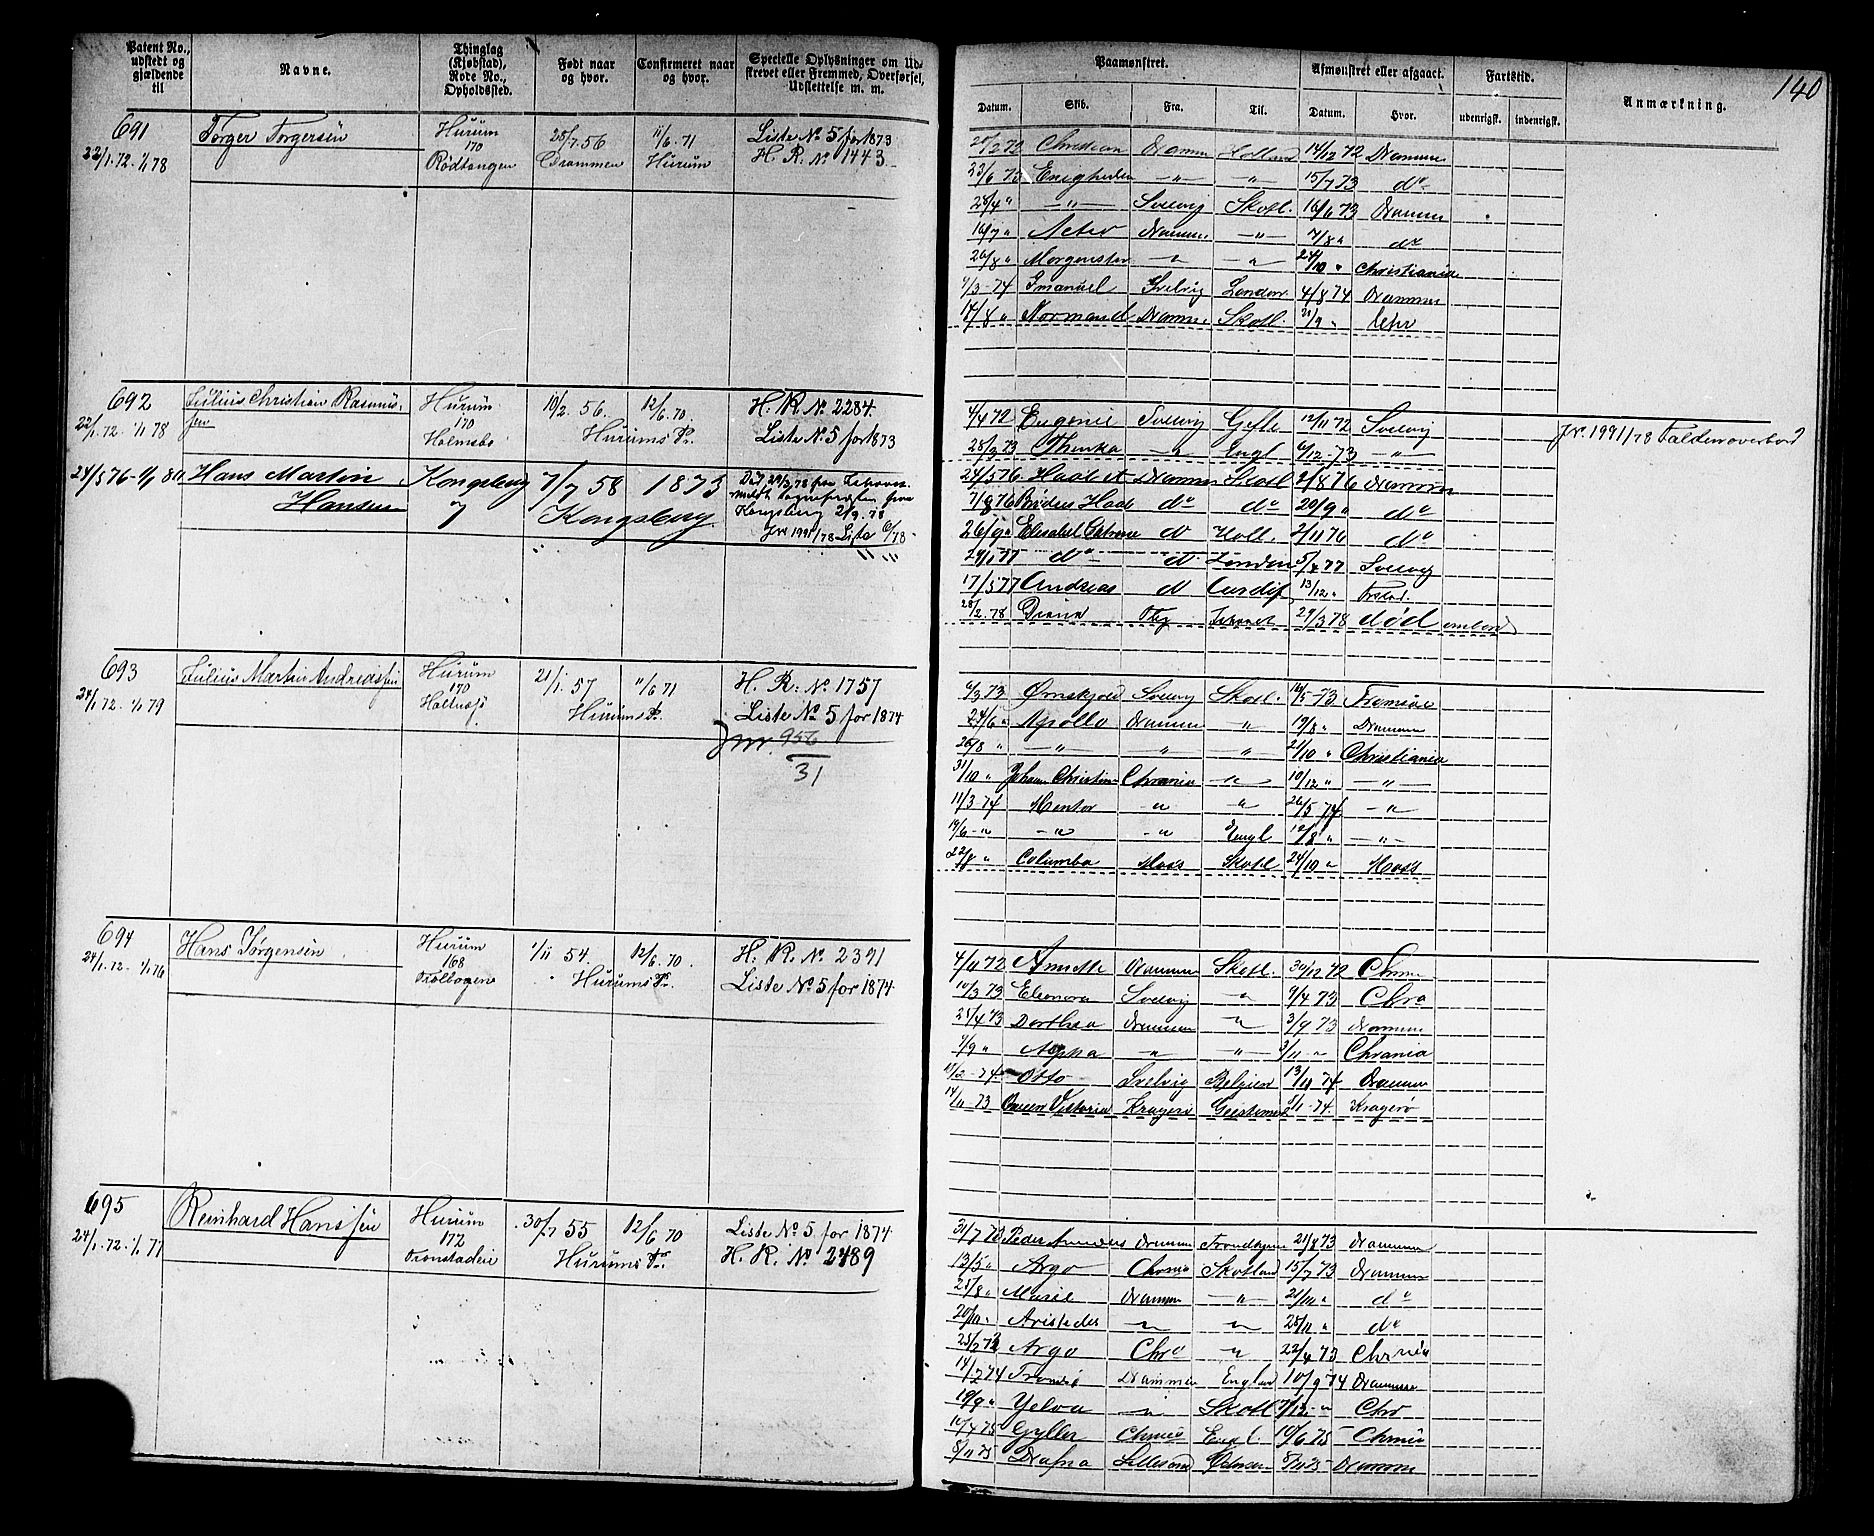 140
Patent No., udstedt og gjældende til
Navne.
Thinglag (Kjøbstad), Rode No., Opholdssted.
Født naar og hvor.
Confirmeret naar og hvor.
Specielle Oplysninger om Udskrevet eller Fremmed, Overførsel, Udslettelse m. m.
Paamønstret.
Afmønstret eller afgaaet.
Fartstid.
Anmærkning.
Datum. Skib. Fra. Til. Datum. Hvor. udenrigsk. indenrigsk.
691 Torger Torgersen Hurum 11/6 71 Liste No 5 for 1873
22/1.72. 1/1 78 170 Rødtangen Drammen Hurum H. R. No 1443.
Christian Holland 14/12 72 Drammen
23/6 73 Enigheden -"- -"- 15/7 73 do
28/4 " -"- Svelvig Skotl. 16/6 73 Drammen
16/7 " Drammen -"- 7/8 " do
26/8 " Morgenster " " 24/10 " Christiania
Emanuel Svelvig London 4/8 74 Drammen
17/8 " Normand Drammen Skotl.
692 Julius Christian Rasmussen Hurum 10/2. 56. 12/6. 70. H. R. No 2284.
22/1.72. 1/1 78 170 Holmsbo Hurums Pr. Liste No 5 for 1873
4/4 72 Eugenie Svelvig Gefle 12/11 72 Svelvig Jr. 1991/78 Falden overbord
28/3 73 Thinka " Engl 6/12-73 -"-
24/5 76 - 1/1 81 Hans Martin Hansen Kongsberg 7 7/7 58 Kongsberg 1873
Kongsberg 2/9 78
Jr. 1991/78 Liste 6/78
24/5 76 Drammen Skotl 2/8 76 Drammen
7/8 76 do do 20/9 " do
26/9 " Elisabet d Holl. 2/11 76 do
do d London 5/4 77 Svelvig
17/5 77 Andreas d Cardif 13/12 "
28/2.78 29/3 78 død ombord
693 Julius Martin Andreassen Hurum 21/1. 57 11/6 71 H. R. No 1757
24/1.72. 1/1 79 170 Hurums Pr. Liste No 5 for 1874
Jnr. 956/31
6/3 73 Ørnskjold Svelvig Skotl. 16/5-73 Tromsøe
24/6 " Apollo Drammen " 19/8 " Drammen
26/8 " -"- " " 21/10 " Christiania
31/10 " Johan Christian Chrania " 10/12 " -"-
11/3-74 Mentor -"- " 26/5-74 -"-
19/6-" -"- -"- Engl 12/8 " -"-
22/8 " Columba Moss Skotl 24/10 " Moss
694 Hans Jørgensen Hurum 1/11 54. 12/6.70. H. R. No 2391
24/1.72. 1/1 76 168 Trolbogen Hurums Pr. Liste No 5 for 1874.
4/11 72 Annette Drammen Skotl. 30/12 72
10/3 73 Eleonora Svelvig " 9/4 73 Chra
25/4 73 Dorthea Drammen " 3/9 73 Drammen
1/9 " " " 3/11 " Chrania
Otto Svelvig Belgien 13/11 74 Drammen
17/11 73 Queen Victoria Kragerø 5/1-74. Kragerø
695 Reinhard Hanssen Hurum 30/7 55 12/6 70 Liste No 5 for 1874
24/1.72. 1/1 77 172 Tronstadeie Hurums Pr. H. R. No 2489
31/7 72 Peder Drammen Trondhjem 21/8 73 Drammen
13/5 " Argo Skotland 15/7 73 Drammen
25/8 " Marie Drammen -"- 21/10 " do
20/10 " Aristedes " " 25/11 " do
25/2 73 Argo Chra " 22/4 73
14/2 74 Tromsø Drammen England 10/9 74 Drammen
19/9 " Yelva " Skotl 7/12. " Chr
10/4 75 Gyller Engl. 19/6 75
8/11 75 Dafna Lillesand Drammen